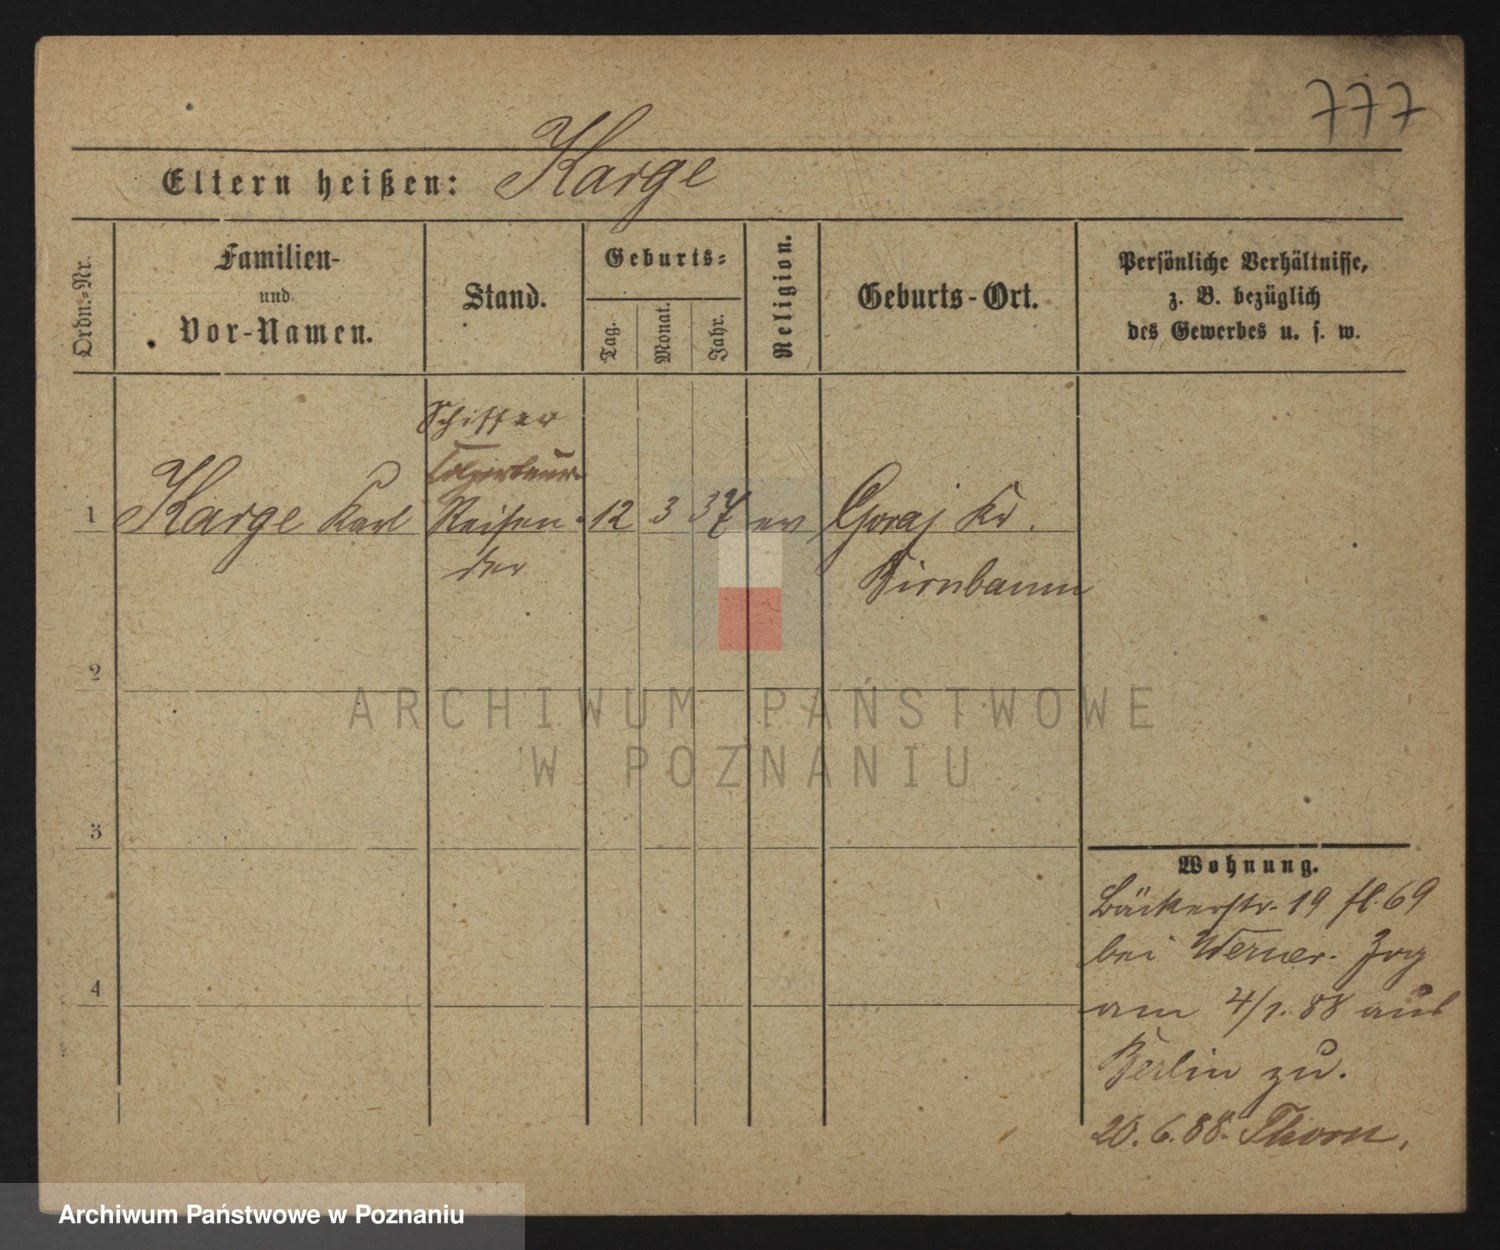 777
Eltern heißen: Karge
Ordn.-Nr.
Familien-
und
Vor-Namen.
Stand.
Geburts-
Tag.
Monat.
Jahr.
Religion.
Geburts-Ort.
Persönliche Verhältnisse,
z. B. bezüglich
des Gewerbes u. s. w.
Schiffer
Colporteur
1 Karge Karl Reisen- 12 3 37 ev Goraj Kr.
der Birnbaum
2
ARCHIWUM PAŃSTWOWE
W POZNANIU
3
Wohnung.
Bäckerstr. 19 fl. 69
bei Werner. Zog
am 4/1. 88 aus
Berlin zu.
20. 6. 88. Thorn.
4
Archiwum Państwowe w Poznaniu